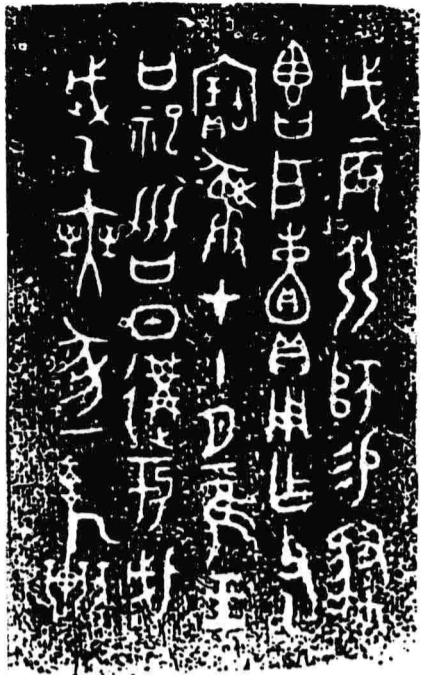 戊辰弜師易肄
戶貝用乍父乙
寶彝才十月一隹王
廿祀劦日遘于匕戊
武乙奭豕一旅